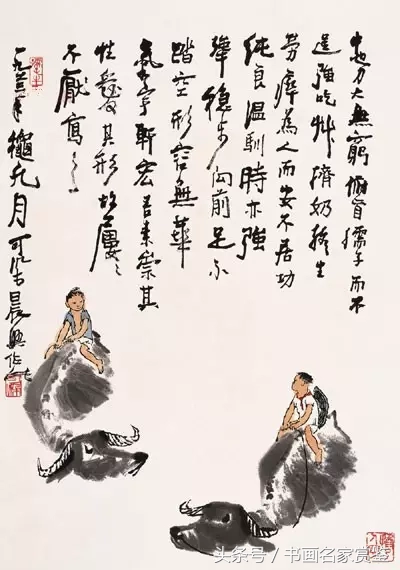 牛也力大無窮俯首孺子而不
逞強吃艸擠奶終生
勞瘁為人而安不居功
純良溫馴時亦強
犟穩步向前足不
踏空形容無華
氣宇軒宏吾素崇其
性愛其形故屢〻
不厭寫之
一九六三年龝九月可染晨興作
头条号 / 书画名家赏鉴